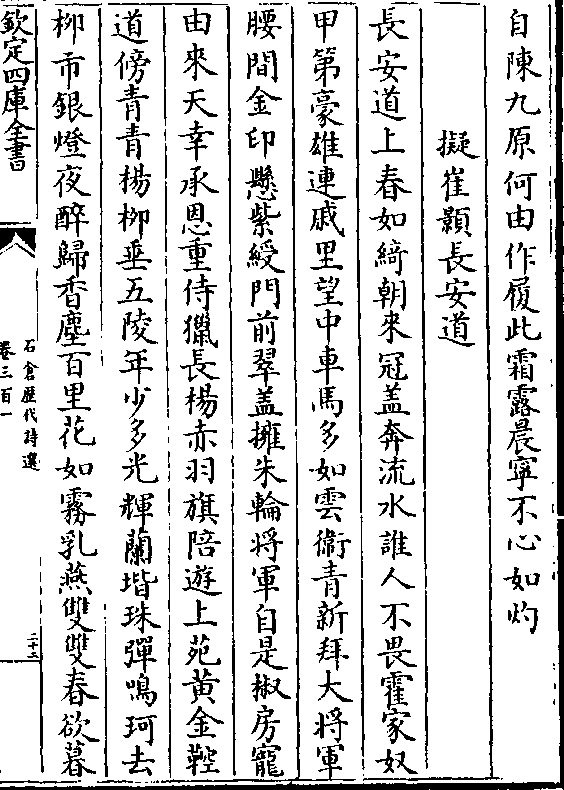 自陳九原何由作履此霜露晨寧不心如灼
擬崔顥長安道
長安道上春如綺朝來冠盖奔流水誰人不畏霍家奴
甲第豪雄連戚里望中車馬多如雲衛青新拜大將軍
腰間金印懸紫綬門前翠盖擁朱輪將軍自是椒房寵
由來天幸承恩重侍獵長楊赤羽旗陪遊上苑黄金鞚
道傍青青楊柳垂五陵年少多光輝蘭堦珠彈鳴珂去
柳市銀燈夜醉歸香塵百里花如霧乳燕雙雙春欲暮
欽定四庫全書
石倉歷代詩選
卷三百一
二十二